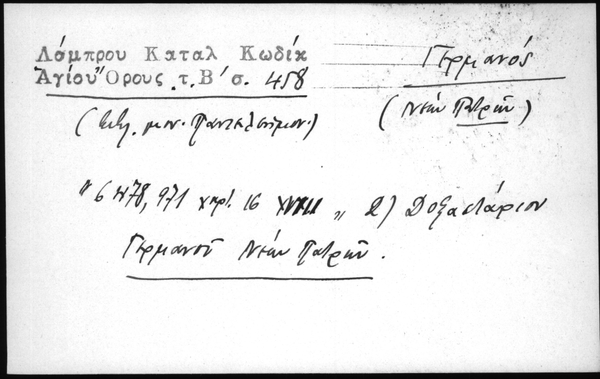 Λάμπρου Καταλ Κωδίκ
Ἁγίου Ὄρους τ. Β' σ. 458
Γερμανός
(βιβλ. μον. Παντελεήμον.)
(Νέων Πατρῶν)
"6478, 971 χαρτ. 16 XVIII „ 2) Δοξαστάριον
Γερμανοῦ Νέων Πατρῶν.